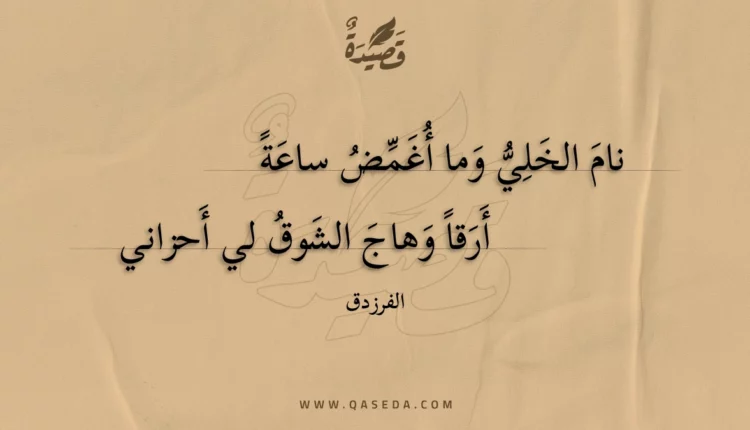 قَصِيدَةٌ
نامَ الخَلِيُّ وَما أُغَمِّضُ ساعَةً
أَرَقاً وَهاجَ الشَوقُ لي أَحزاني
الفرزدق
WWW.QASEDA.COM